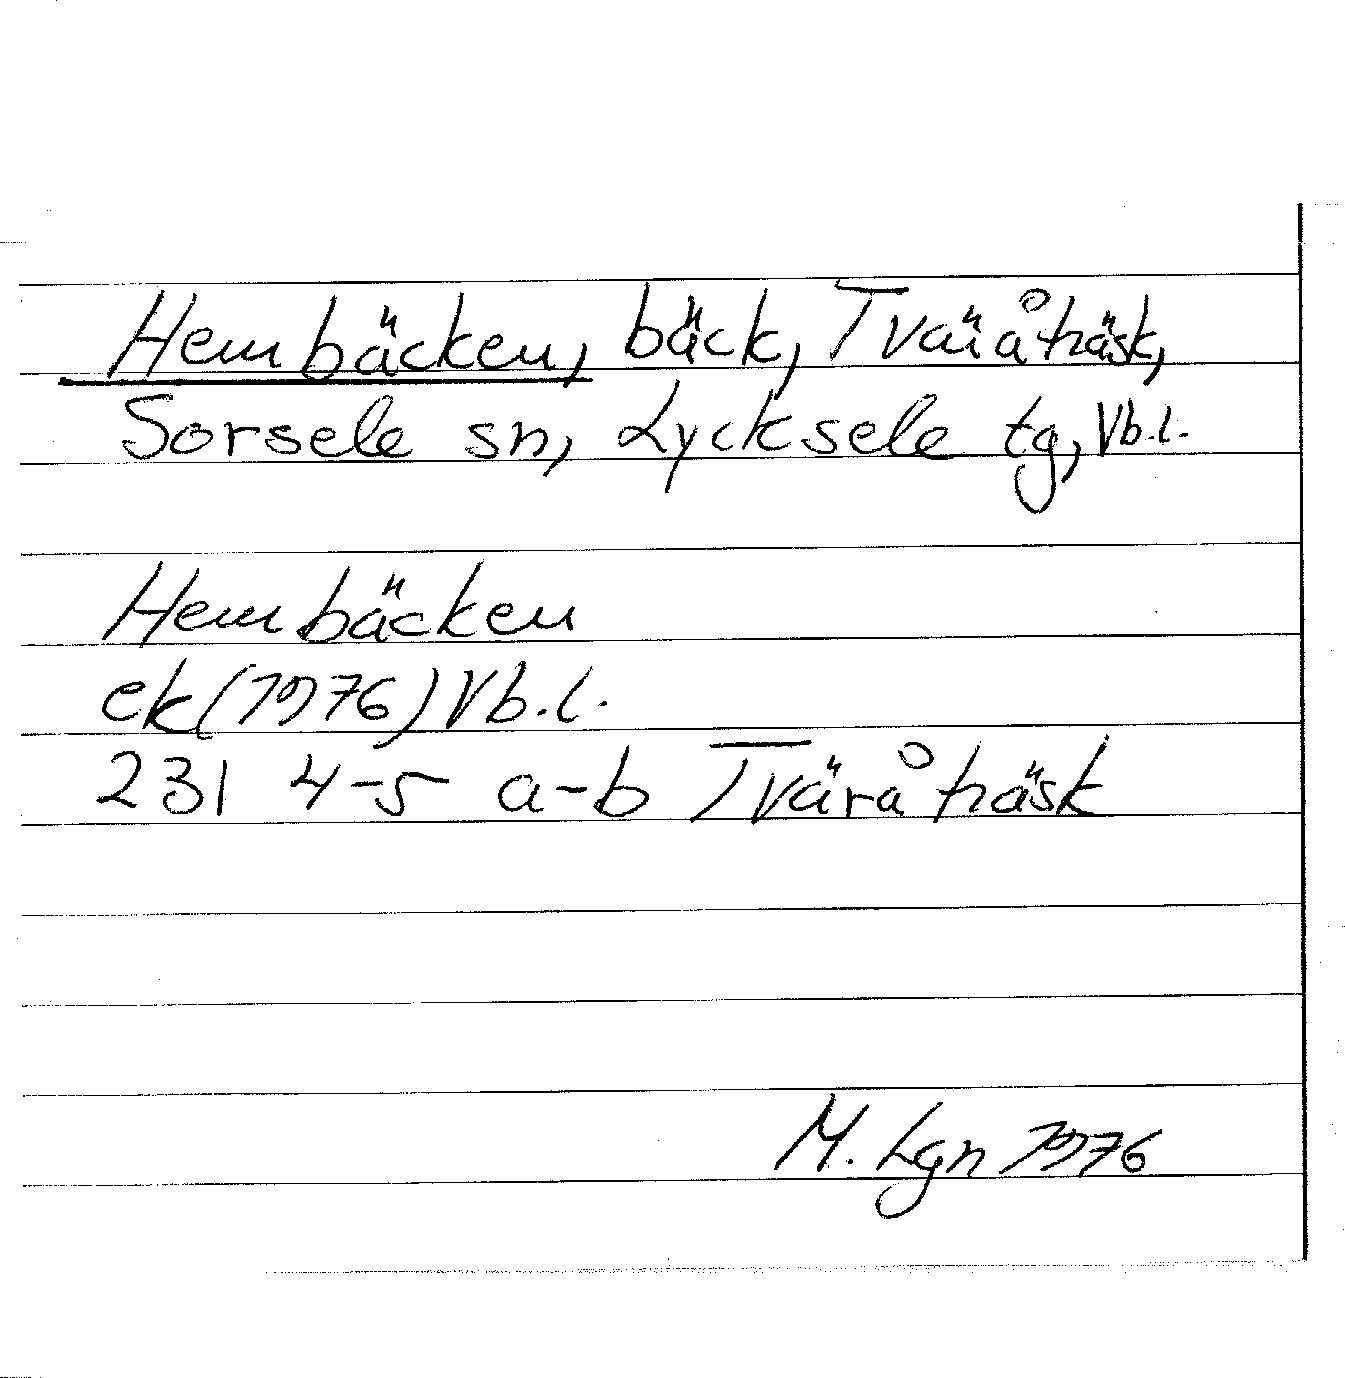 Hembäcken, bäck, Tväråträsk,
Sorsele sn, Lycksele tg, Vb.l.
Hembäcken
ek (1976) Vb.l.
231 4-5 a-b Tväråträsk
M. Lgn 1976